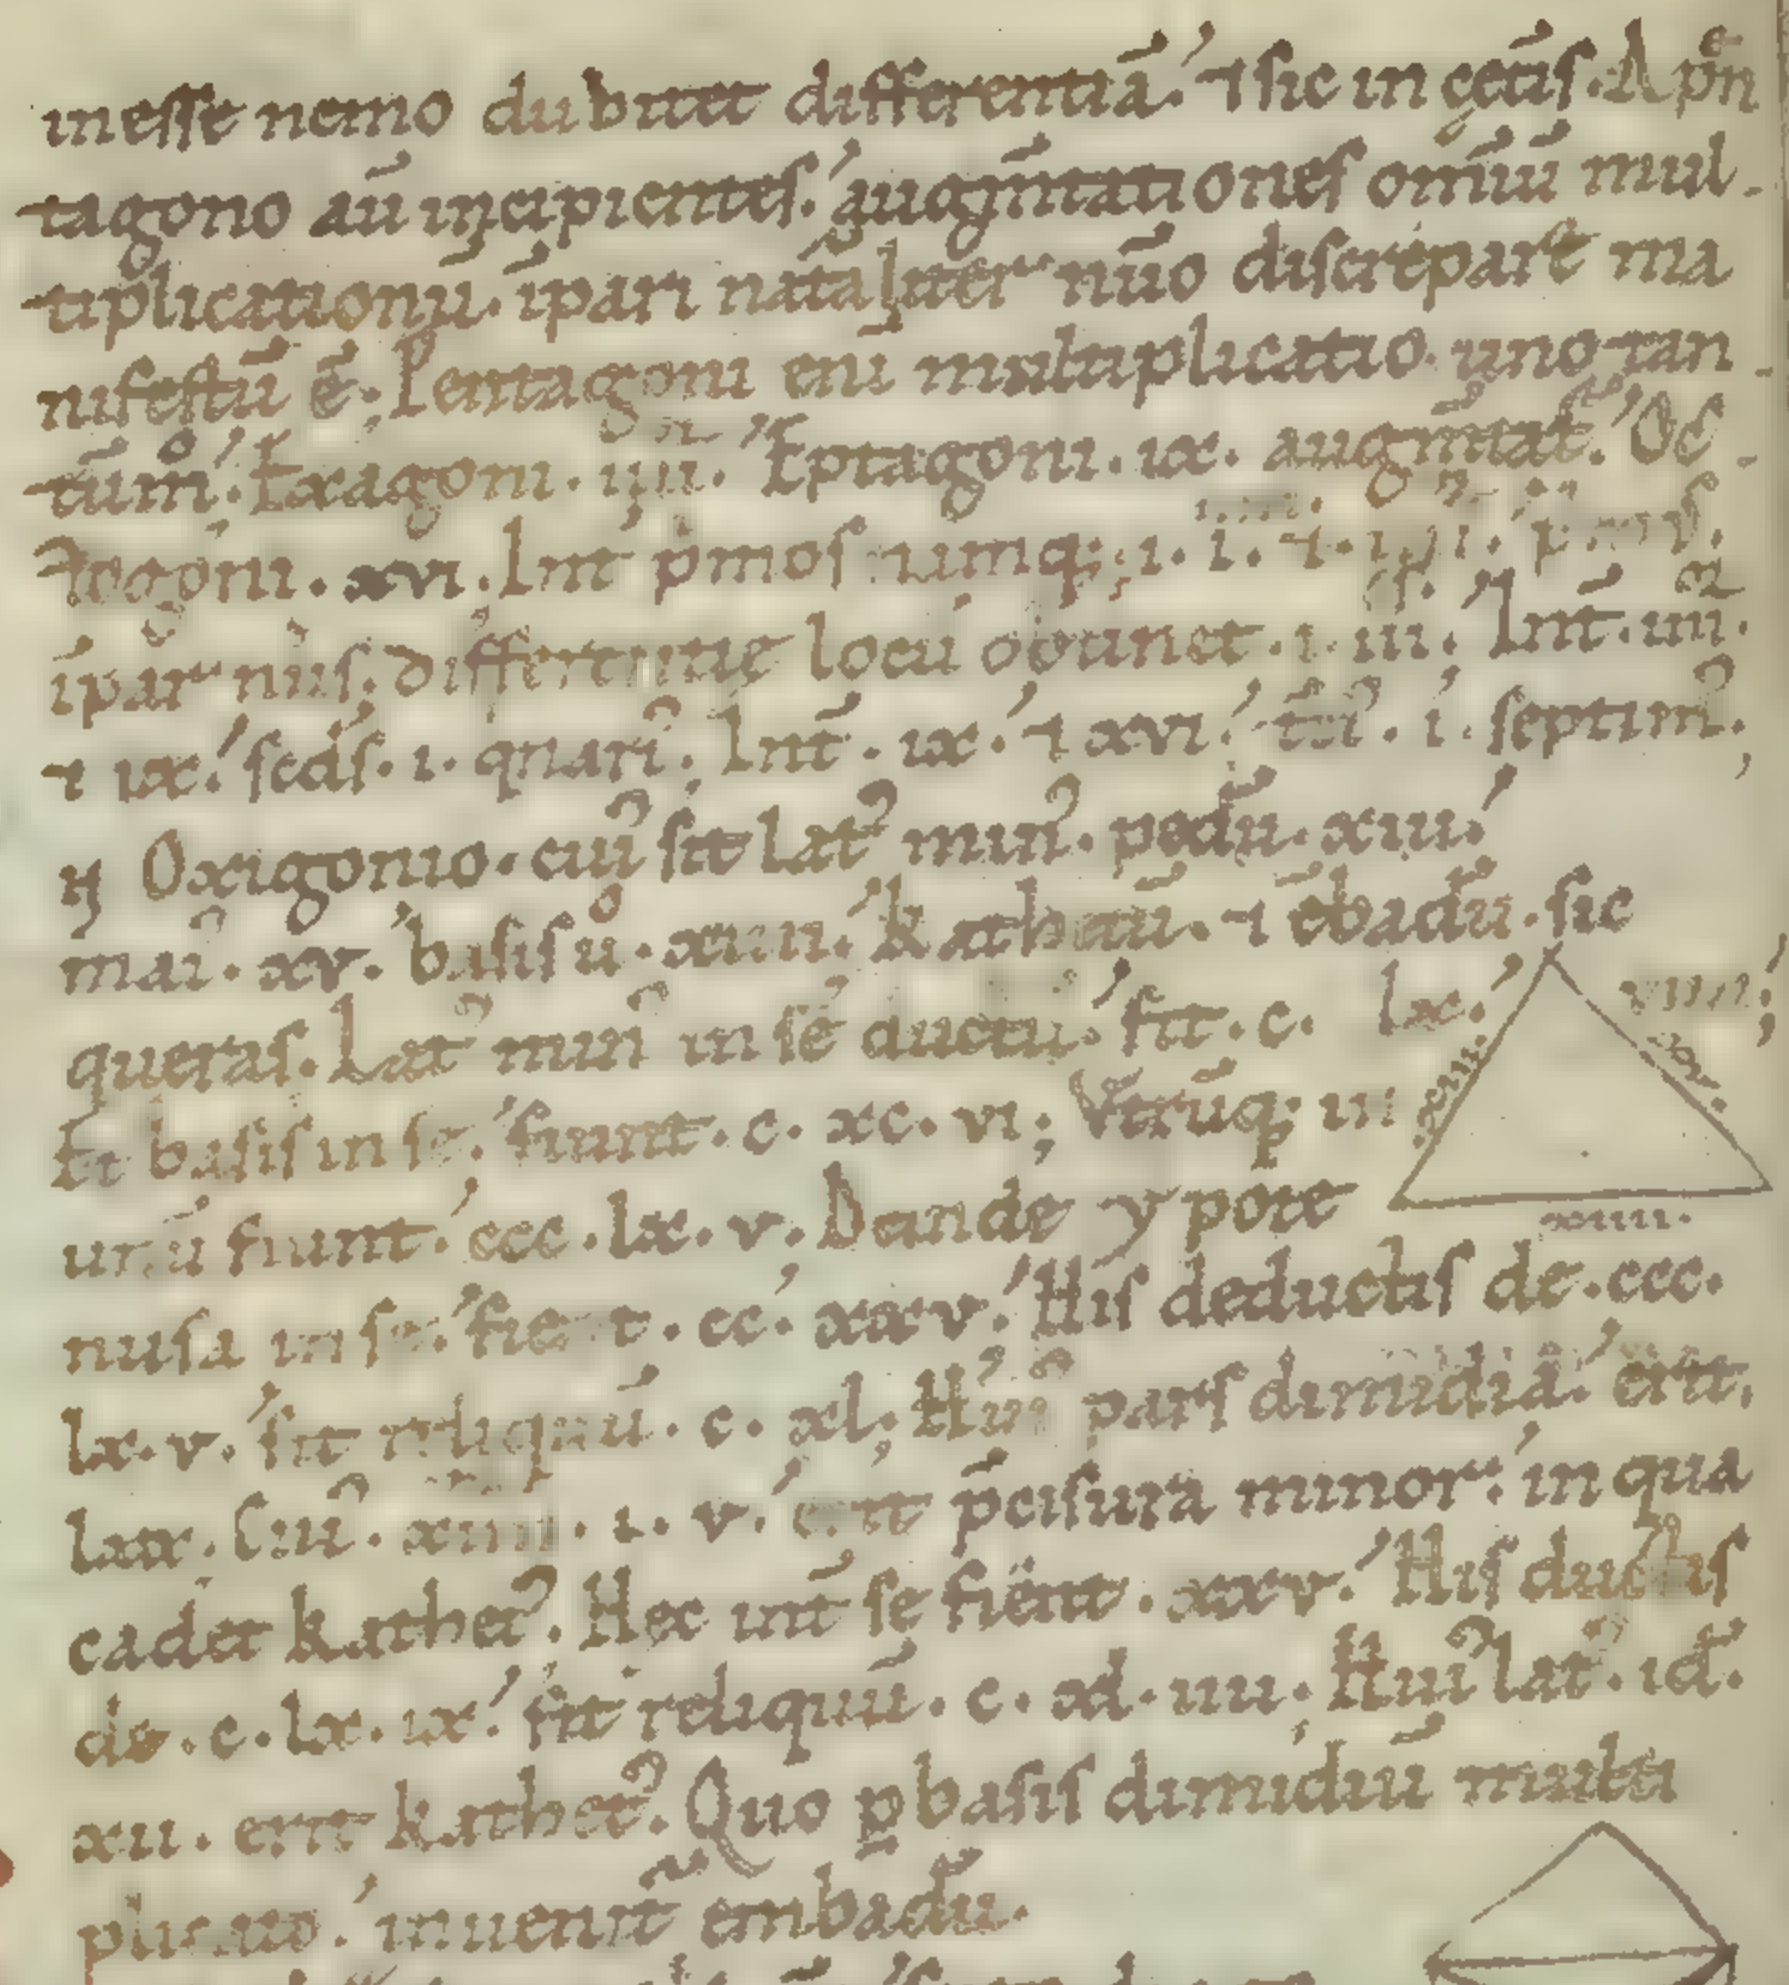 inesse nemo dubitet differentiā. ⁊ sic in cet̄is. A pēn
tagono aū incipientes. augm̄tationes omīū mul-
tiplicationū. īpari nat̄aliter nūo discrepare ma
nifestū ē; Pentagoni enī multiplicatio uno tan-
tūm. Exagoni. iiii. Eptagoni. ix. augm̄tat̄. Oc-
togoni. xvi. Int̄ pⁱmos
īpar nūs, differentie locū obtinet. i. iii. Int̄. iiii.
⁊ ix. scd̄s. i. qⁱnari⁹. Int̄. ix. ⁊ xvi. t̄ci⁹. i. septim⁹.
IN Oxigonio. cui⁹ sit lat⁹ min⁹. pedū. xiii.
mai⁹. xv. basis ū. xiiii. kathetū. ⁊ ēbadū. sic
queras. Lat⁹ min⁹ in se ductū. fit. c. lx. viiii;
Et basis in se. fiunt. c. xc. vi; Vtrūq; in
unū fiunt. ccc. lx. v. Deinde ypote
nusa in se. fient. cc. xxv. His deductis de. ccc.
lx. v. fit reliquū. c. xl; Hui⁹ pars dimidia. erit,
lxx. Cui⁹. xiiii. i. v. erit p̄cisura minor. in qua
cadet kathet⁹. Hec int̄ se fient. xxv. His ductis
de. c. lx. ix. fit reliquū. c. xl. iiii. Hui⁹ lat⁹. id.
xii. erit kathet⁹. Quo p̱ basis dimidiū multi
plicato. inuenit̄ embadū.
xiii.
xv.
xiiii.